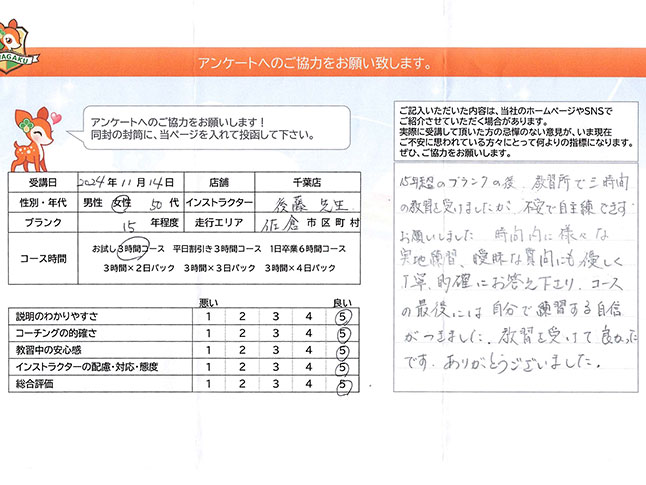 NAGAKU
アンケートへのご協力をお願い致します。
アンケートへのご協力をお願いします！
同封の封筒に、当ページを入れて投函して下さい。
受講日 2024年11月14日 店舗 千葉店
性別・年代 男性 女性 50代 インストラクター 後藤先生
ブランク 15年程度 走行エリア 佐倉市区町村
コース時間
お試し3時間コース 平日割引き3時間コース 1日卒業6時間コース
3時間×2日パック 3時間×3日パック 3時間×4日パック
悪い 良い
説明のわかりやすさ 1 2 3 4 5
コーチングの的確さ 1 2 3 4 5
教習中の安心感 1 2 3 4 5
インストラクターの配慮・対応・態度 1 2 3 4 5
総合評価 1 2 3 4 5
ご記入いただいた内容は、当社のホームページやSNSで
ご紹介させていただく場合があります。
実際に受講して頂いた方の忌憚のない意見が、いま現在
ご不安に思われている方々にとって何よりの指標になります。
ぜひ、ご協力をお願いします。
15年超のブランクの後、教習所で三時間
の教習を受けましたが、不安で自主練できず
お願いしました 時間内に様々な
実地練習、曖昧な質問にも優しく
丁寧、的確にお答え下さり、コース
の最後には自分で練習する自信
がつきました。教習を受けて良かった
です。ありがとうございました。